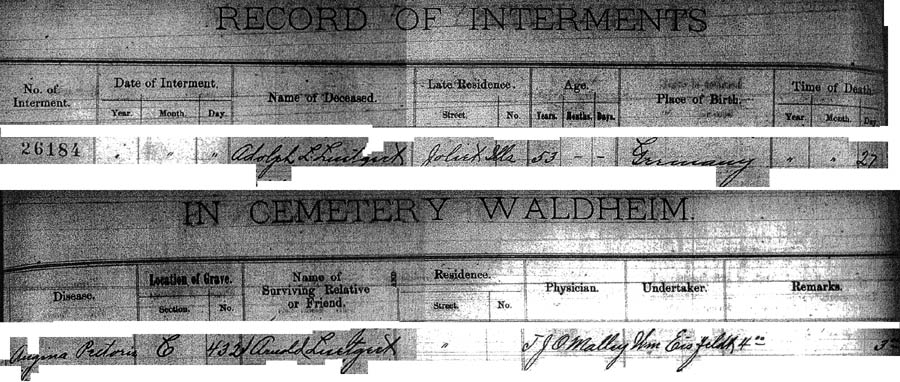 RECORD OF INTERMENTS
No. of Interment. Date of Interment. Name of Deceased. Late Residence. Age. Place of Birth. Time of Death
Year. Month. Day. Street. No. Years. Months. Days. Year. Month. Day
26184 " " " Adolph L Luetgert Joliet Ills 53 - - Germany " " 27
IN CEMETERY WALDHEIM.
Disease. Location of Grave. Name of Surviving Relative or Friend. Residence. Physician. Undertaker. Remarks.
Section. No. Street. No.
Angina Pectoris C Arnold Luetgert " T J O'Malley Wm Eisfeldt